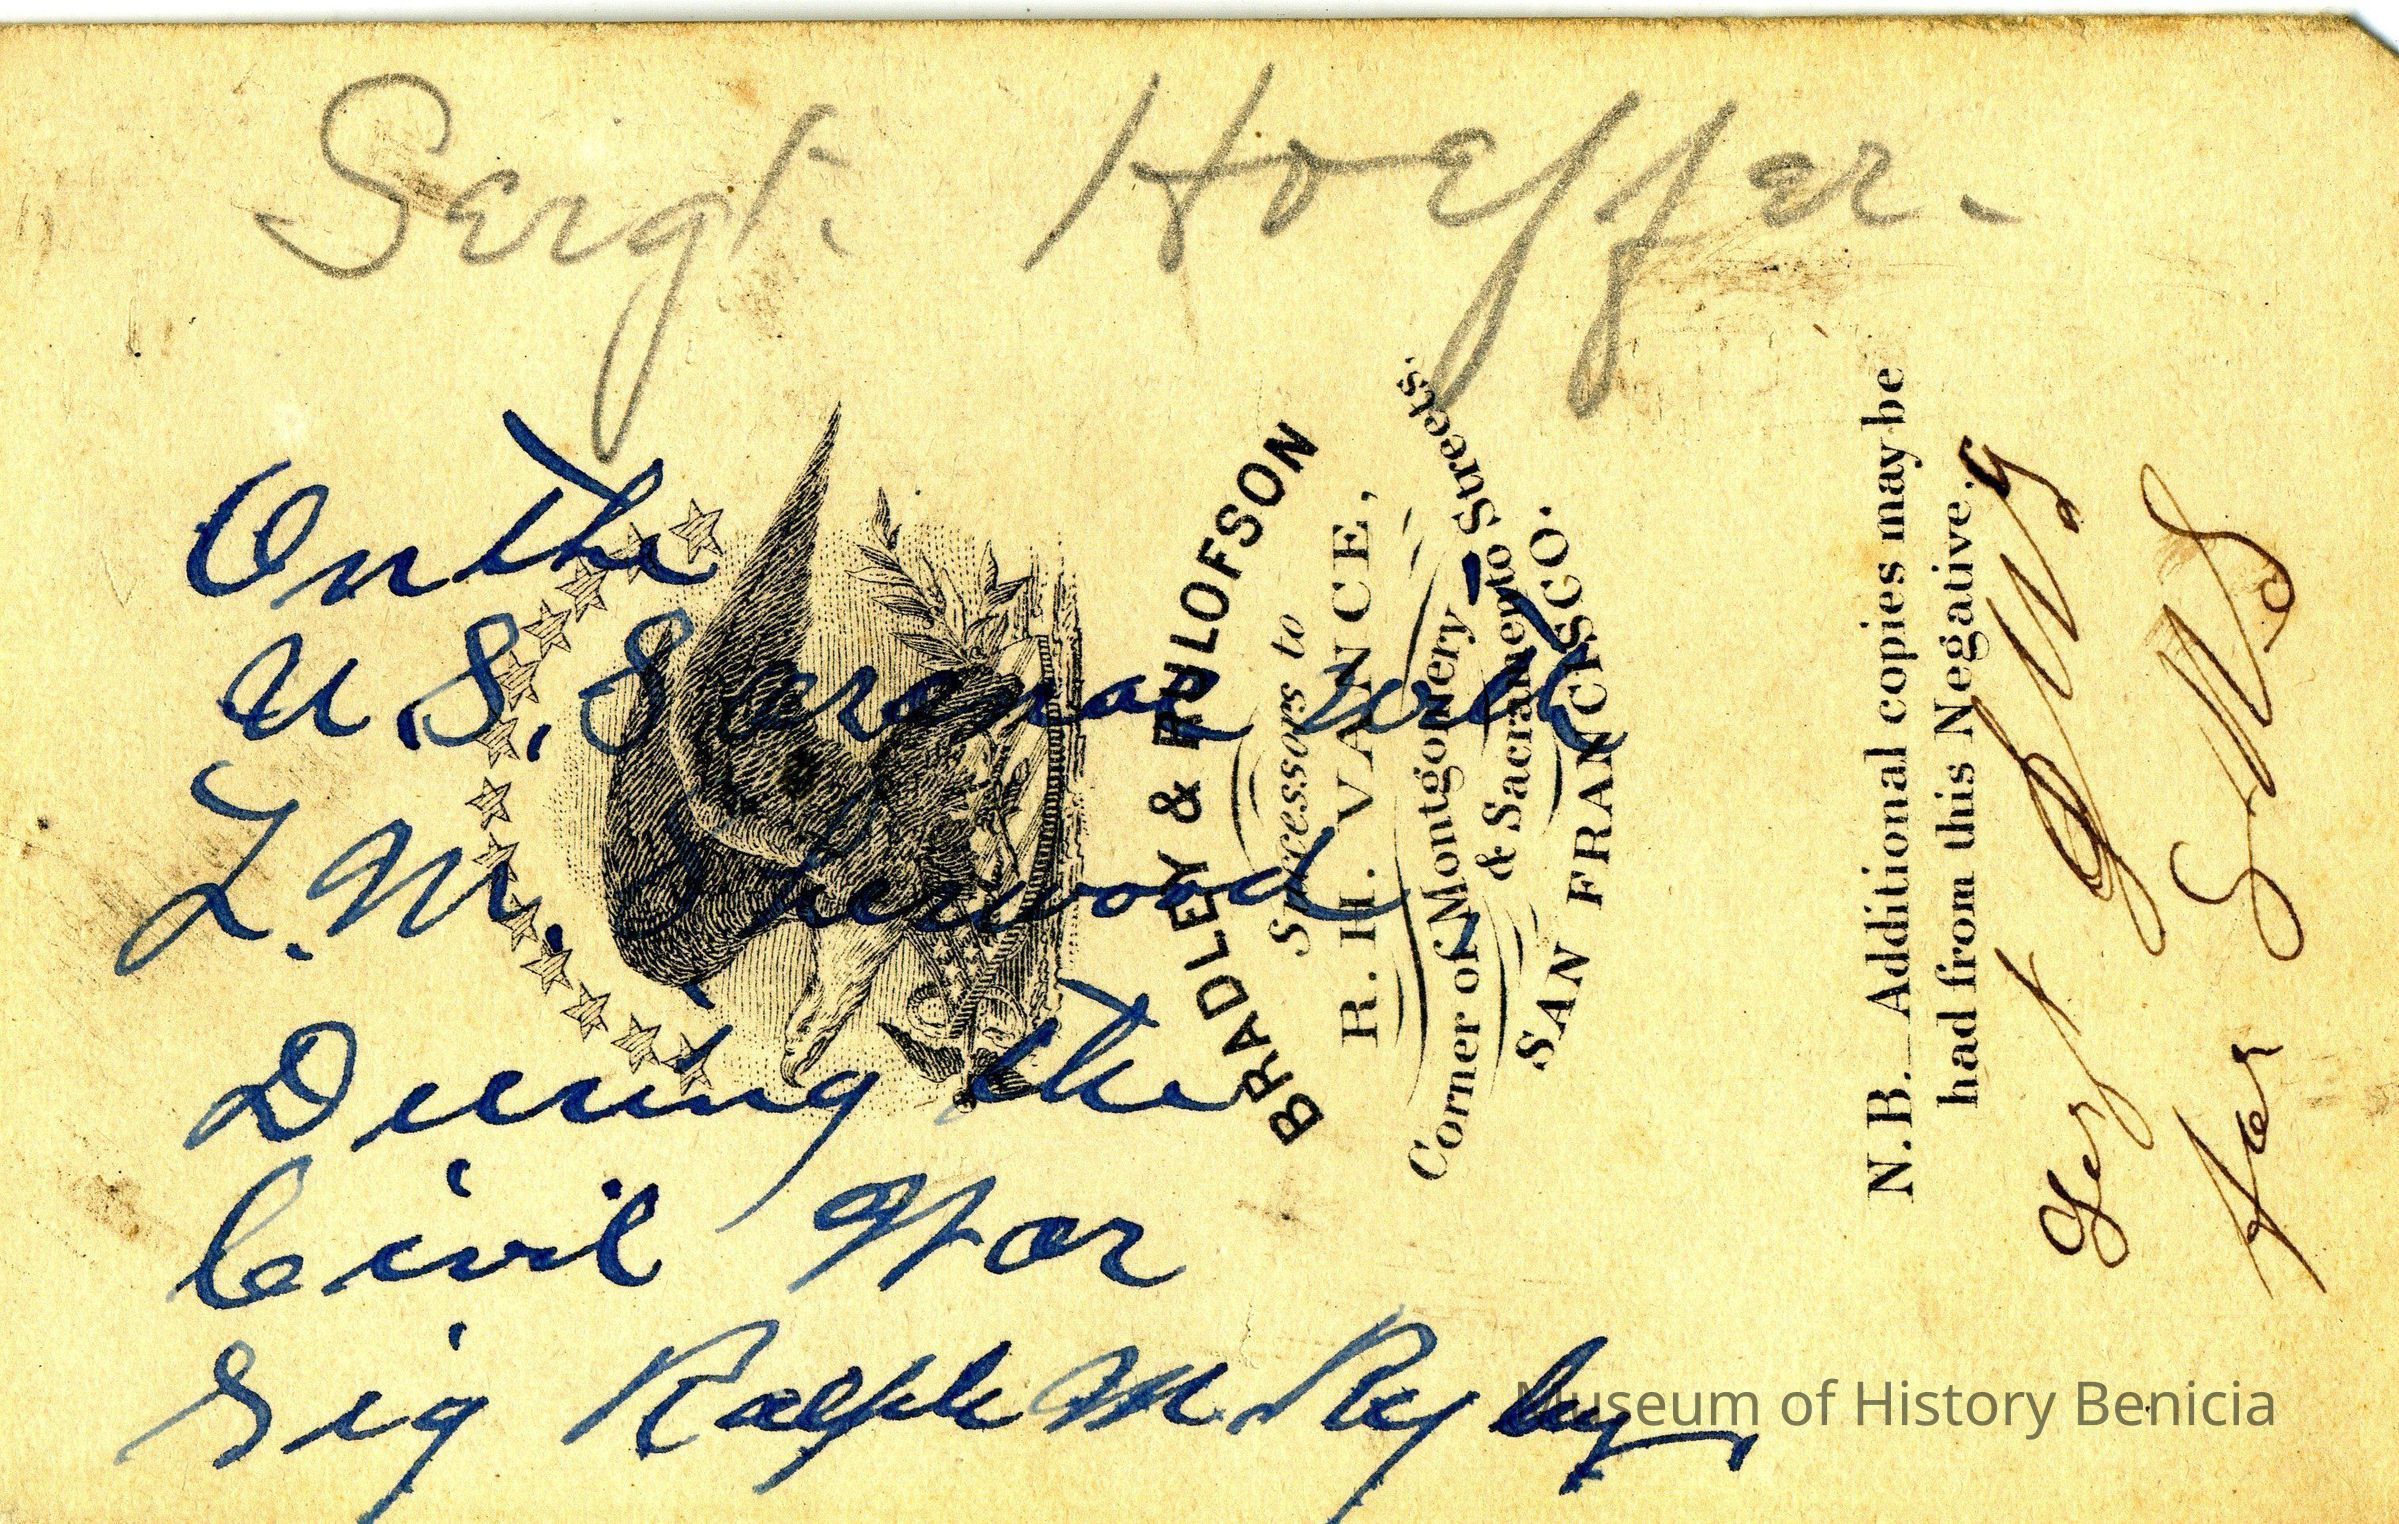 Sergt. Hoeffer.
On the
U.S. Saranac with
L.M. Sherwood
During the
Civil War
Sig Ralph M. Rigby
BRADLEY & RULOFSON
Successors to
R.H. VANCE,
Corner of Montgomery
& Sacramento Streets.
SAN FRANCISCO.
N.B. Additional copies may be
had from this Negative.
Museum of History Benicia